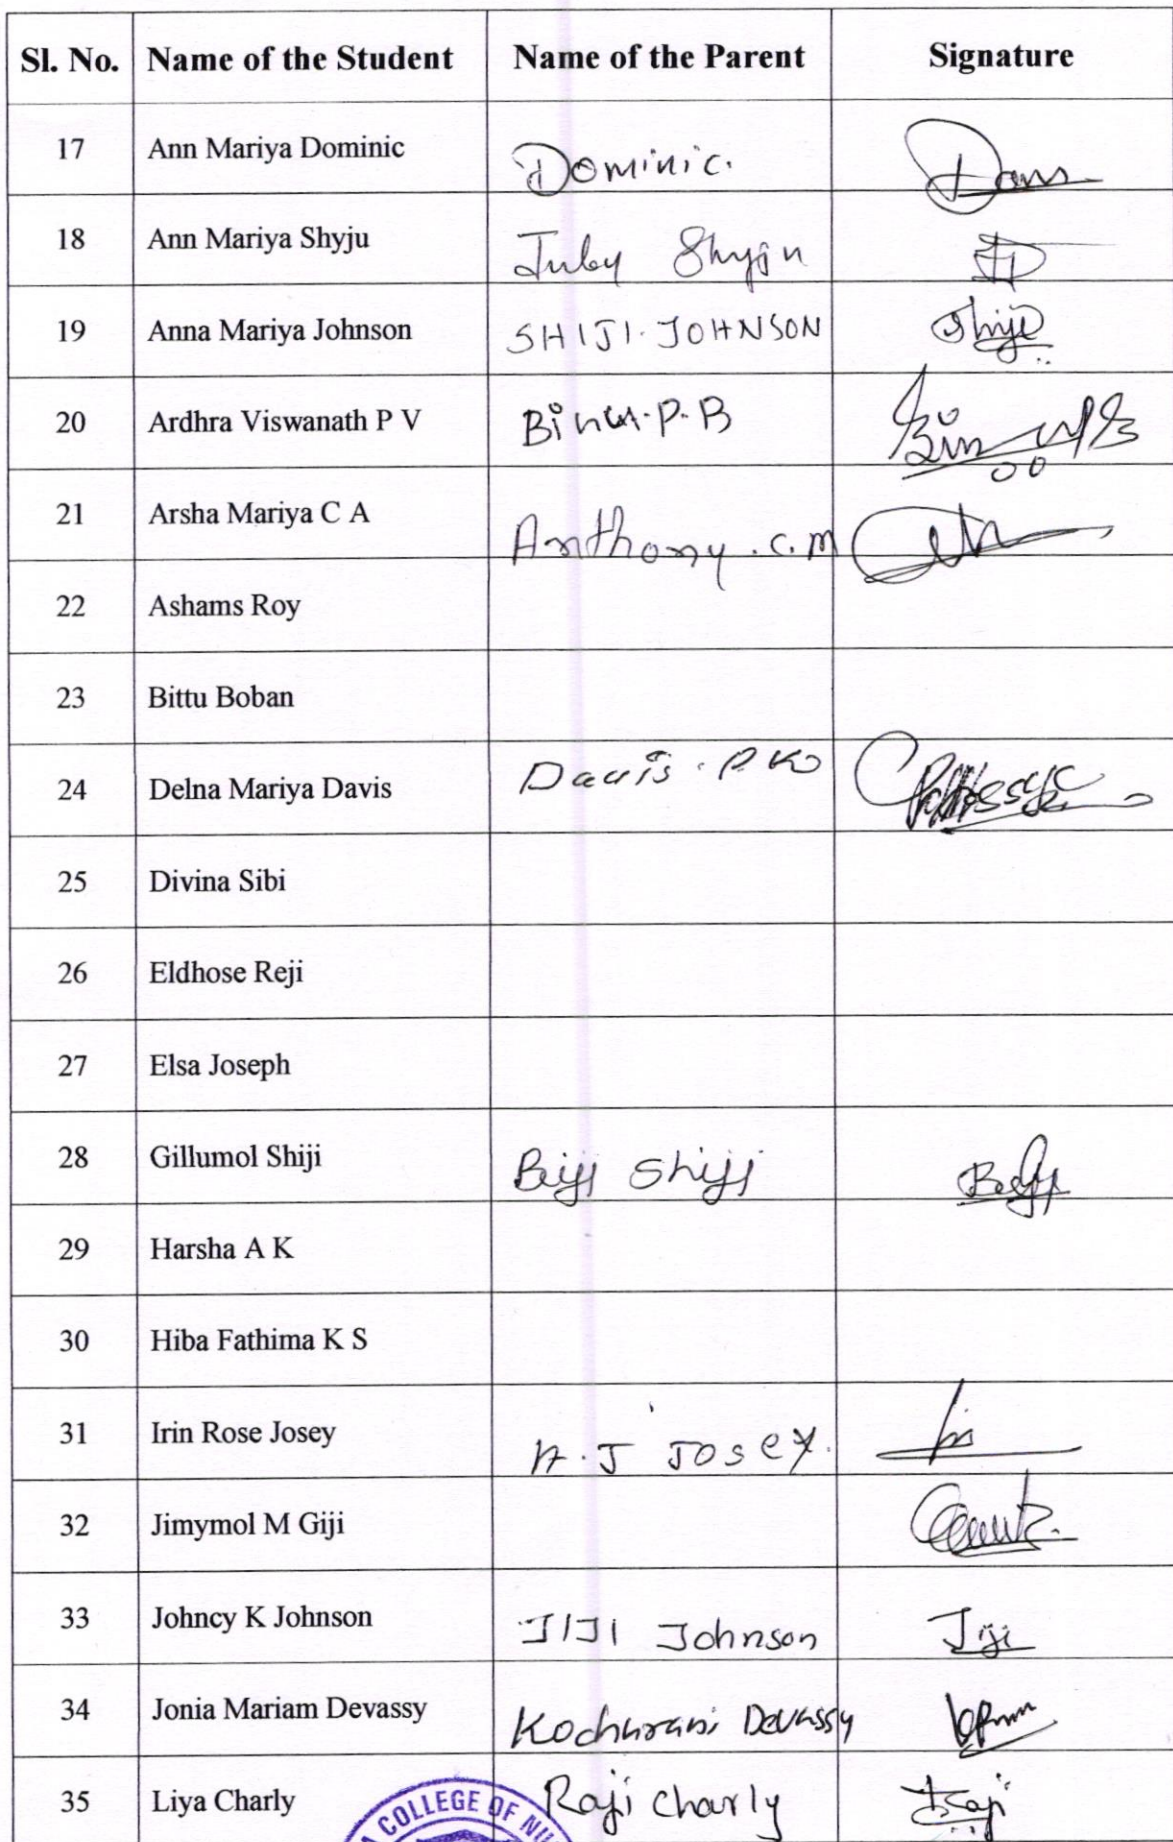 Sl. No. Name of the Student Name of the Parent Signature
17 Ann Mariya Dominic Dominic.
18 Ann Mariya Shyju Juby Shyju
19 Anna Mariya Johnson SHIJI. JOHNSON Shiji
20 Ardhra Viswanath P V Binu.P.B
21 Arsha Mariya C A Anthony.C.M
22 Ashams Roy
23 Bittu Boban
24 Delna Mariya Davis Davis.
25 Divina Sibi
26 Eldhose Reji
27 Elsa Joseph
28 Gillumol Shiji Biji Shiji
29 Harsha A K
30 Hiba Fathima K S
31 Irin Rose Josey A.J JOSEY.
32 Jimymol M Giji
33 Johncy K Johnson JIJI Johnson Jiji
34 Jonia Mariam Devassy Kochurani Devassy
35 Liya Charly Raji Charly Raji
COLLEGE OF